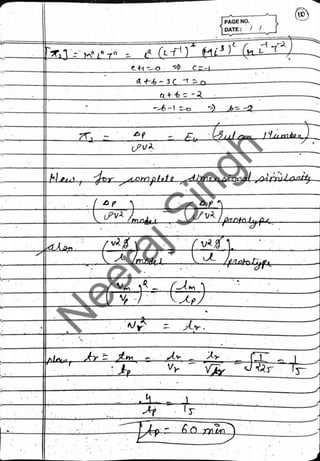 110
PAGE NO.
DATE: / /
[π2] = M⁰L⁰T⁰ = ℓᵃ (LT⁻¹)ᵇ (ML⁻³)ᶜ (ML⁻¹T⁻²)
c+1=0 ⇒ c=-1
a+b-3c-1=0
a+b=-2
-b-2=0 ⇒ b=-2
π2 = ΔP/ρv² = Eu (Euler Number)
Now, for complete dimensional similarity
(ΔP/ρv²)model = (ΔP/ρv²)prototype
Also (v²g/l)model = (v²g/l)prototype
(Vm/Vp)² = (lm/lp)
Vr² = lr.
Now, tr = tm/tp = lr/Vr = lr/√lr = √1/225 = 1/15
4/tp = 1/15
tp = 60 min
Neeraj Singh